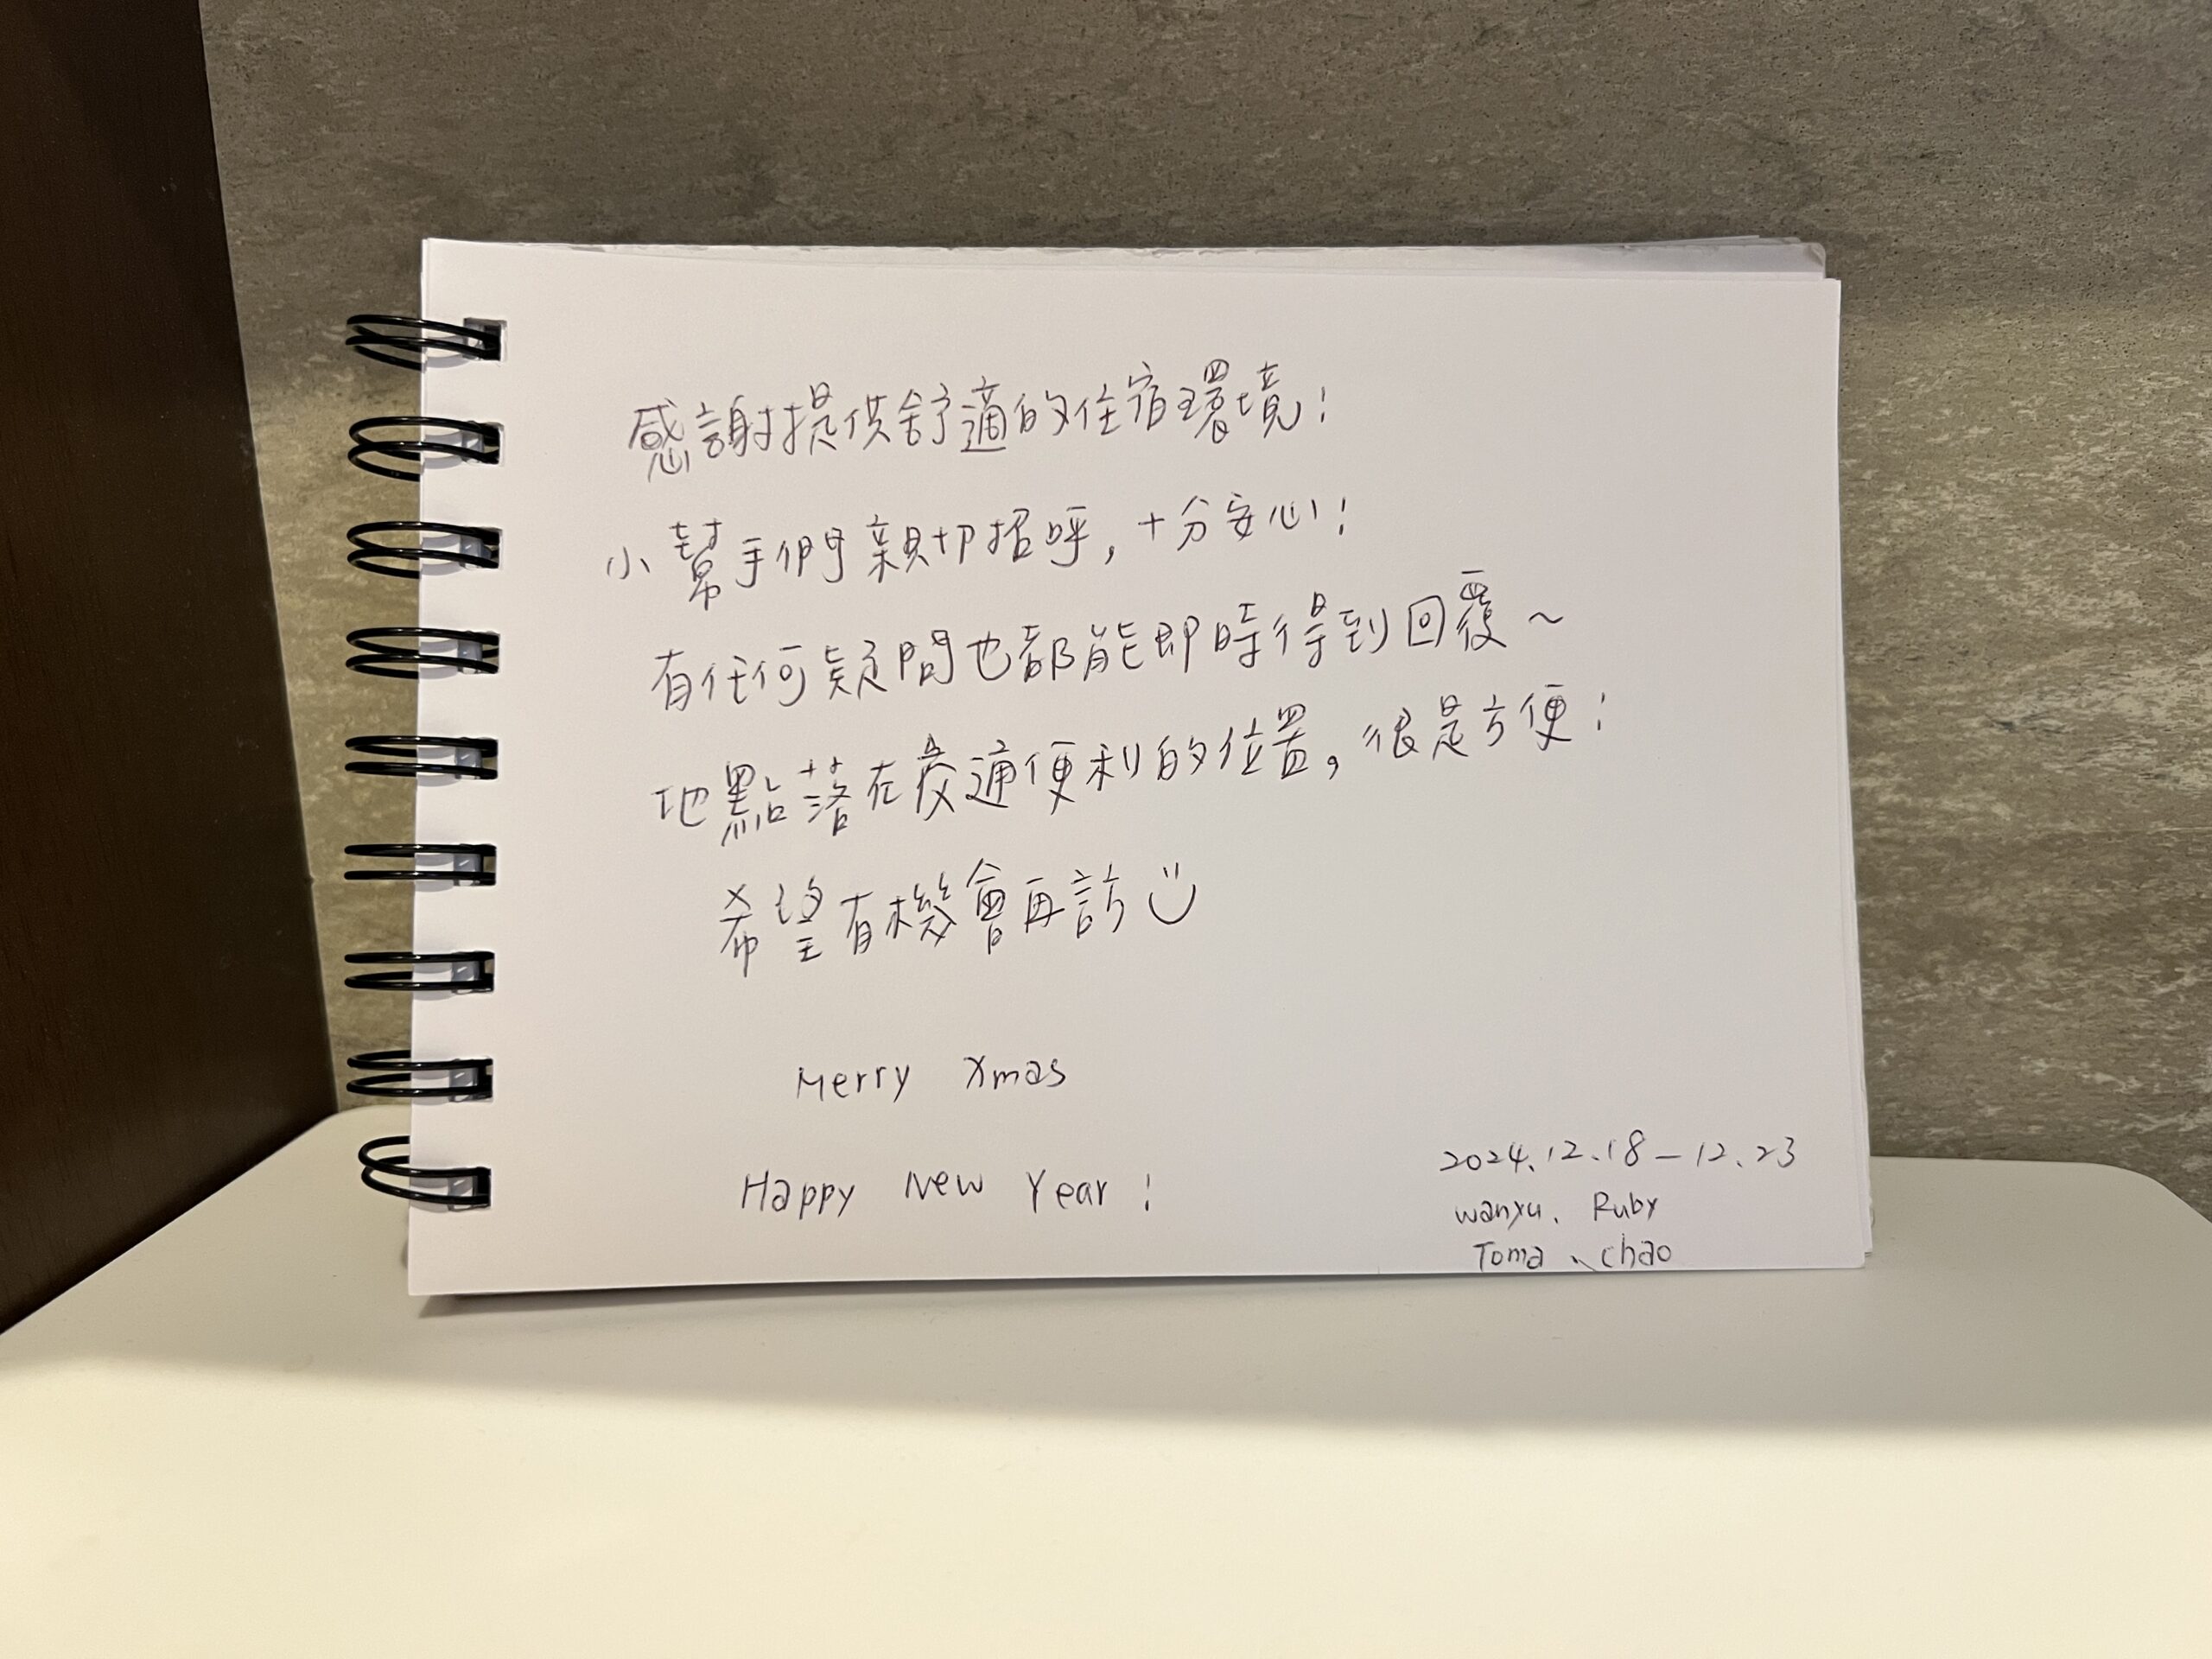 感謝提供舒適的住宿環境！
小幫手們親切招呼，十分安心！
有任何疑問也都能即時得到回覆～
地點落在交通便利的位置，很是方便！
希望有機會再訪☺
Merry Xmas
Happy New Year！
2024.12.18－12.23
Wanyu、Ruby
Toma、Chao